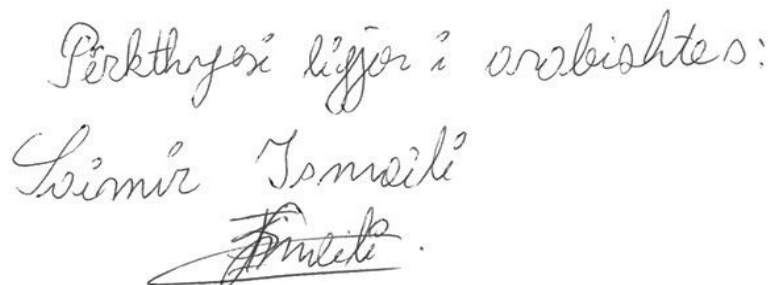 Përkthyesi ligjor i arabishtes:
Saimir Ismaili